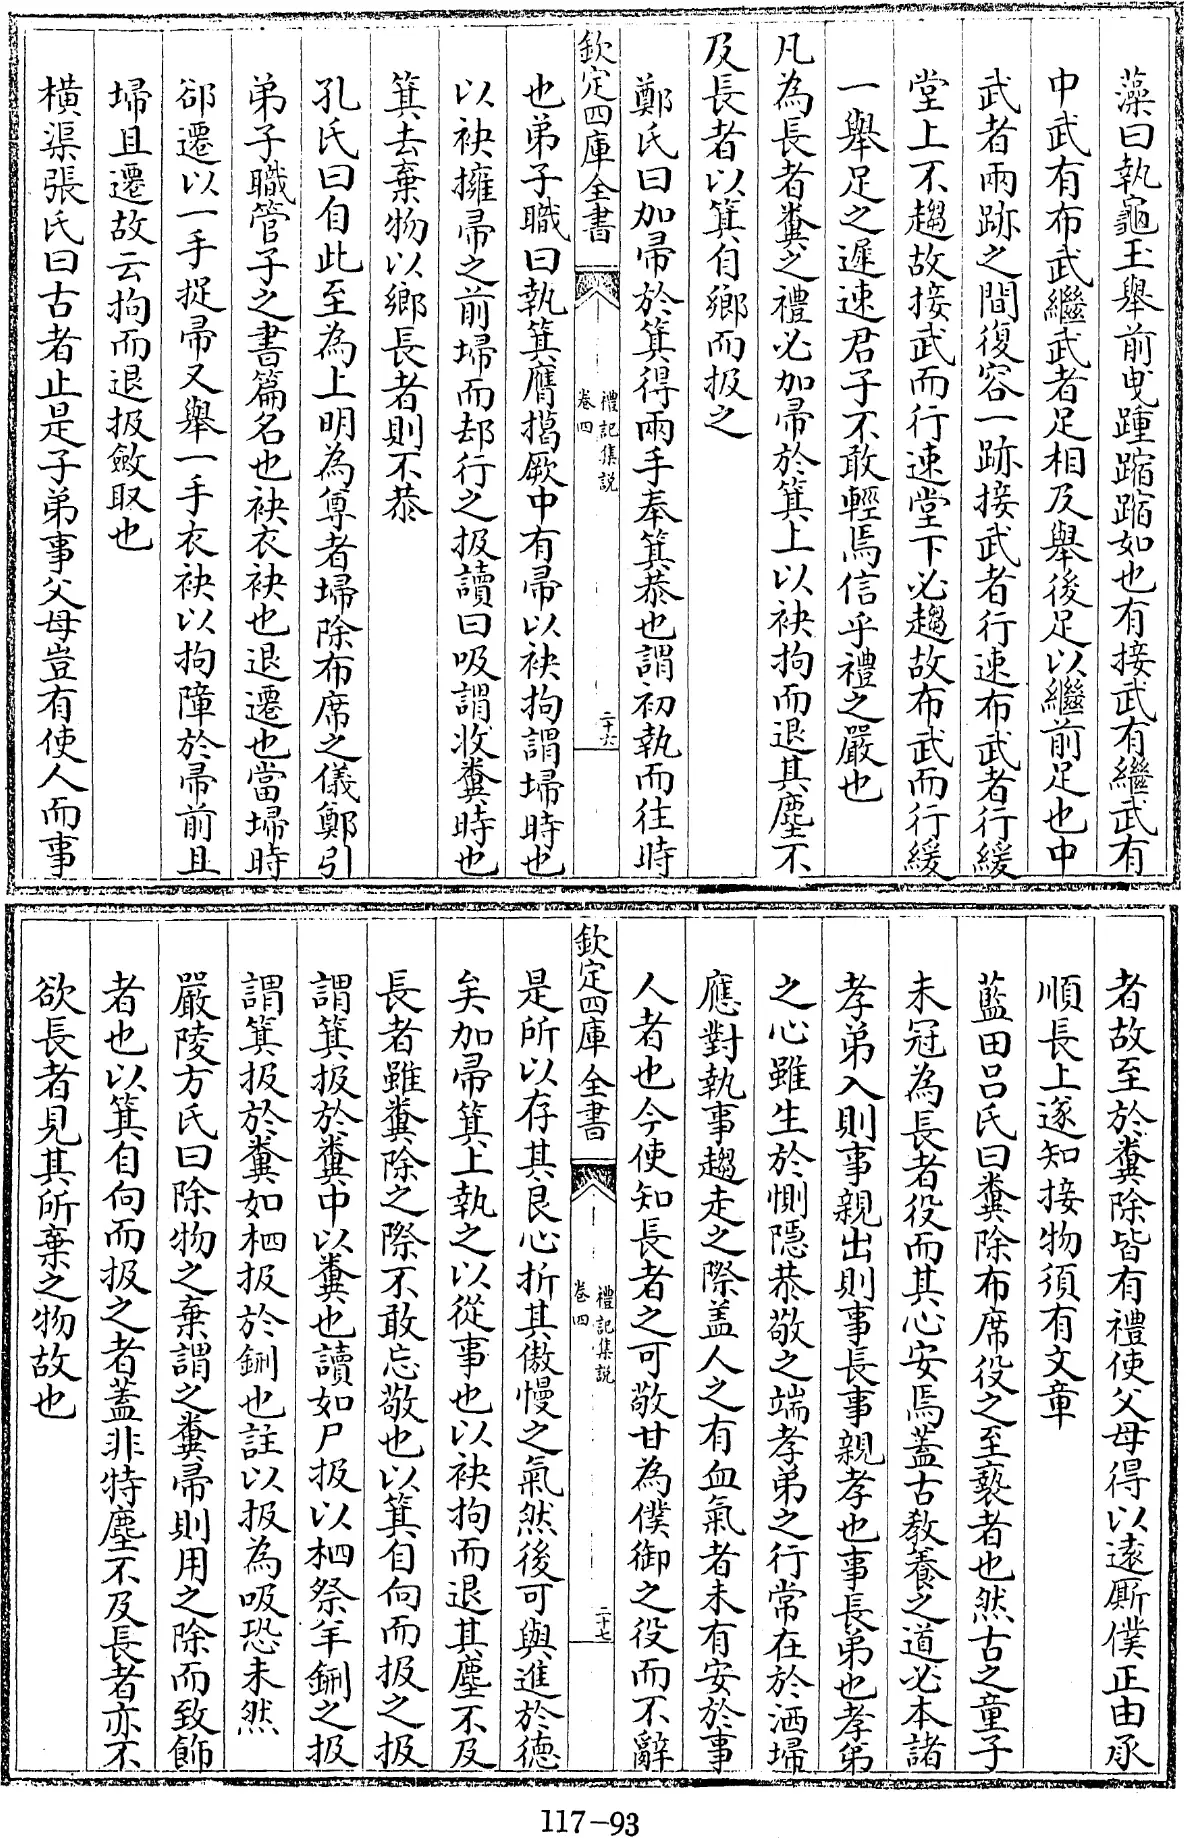 藻曰執龜玉舉前曳踵蹜蹜如也有接武有繼武有
中武有布武繼武者足相及舉後足以繼前足也中
武者兩跡之間復容一跡接武者行速布武者行緩
堂上不趨故接武而行速堂下必趨故布武而行緩
一舉足之遲速君子不敢輕焉信乎禮之嚴也
凡為長者糞之禮必加帚於箕上以袂拘而退其塵不
及長者以箕自鄉而扱之
鄭氏曰加帚於箕得兩手奉箕恭也謂初執而往時
欽定四庫全書
禮記集說
卷四
二十六
也弟子職曰執箕膺擖厥中有帚以袂拘謂埽時也
以袂擁帚之前埽而却行之扱讀曰吸謂收糞時也
箕去棄物以鄉長者則不恭
孔氏曰自此至為上明為尊者埽除布席之儀鄭引
弟子職管子之書篇名也袂衣袂也退遷也當埽時
卻遷以一手捉帚又舉一手衣袂以拘障於帚前且
埽且遷故云拘而退扱斂取也
橫渠張氏曰古者止是子弟事父母豈有使人而事
者故至於糞除皆有禮使父母得以遠厮僕正由承
順長上遂知接物須有文章
藍田呂氏曰糞除布席役之至褻者也然古之童子
未冠為長者役而其心安焉蓋古教養之道必本諸
孝弟入則事親出則事長事親孝也事長弟也孝弟
之心雖生於惻隱恭敬之端孝弟之行常在於洒埽
應對執事趨走之際盖人之有血氣者未有安於事
人者也今使知長者之可敬甘為僕御之役而不辭
欽定四庫全書
禮記集說
卷四
二十七
是所以存其良心折其傲慢之氣然後可與進於德
矣加帚箕上執之以從事也以袂拘而退其塵不及
長者雖糞除之際不敢忘敬也以箕自向而扱之扱
謂箕扱於糞中以糞也讀如尸扱以柶祭羊鉶之扱
謂箕扱於糞如柶扱於鉶也註以扱為吸恐未然
嚴陵方氏曰除物之棄謂之糞帚則用之除而致飾
者也以箕自向而扱之者蓋非特塵不及長者亦不
欲長者見其所棄之物故也
117-93